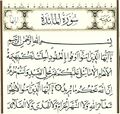 سُورَةُ المَائِدَةِ
بِسْمِ اللَّهِ الرَّحْمَٰنِ الرَّحِيمِ
يَا أَيُّهَا الَّذِينَ آمَنُوا أَوْفُوا بِالْعُقُودِ أُحِلَّتْ لَكُم بَهِيمَةُ
الْأَنْعَامِ إِلَّا مَا يُتْلَىٰ عَلَيْكُمْ غَيْرَ مُحِلِّي الصَّيْدِ وَأَنتُمْ حُرُمٌ إِنَّ
اللَّهَ يَحْكُمُ مَا يُرِيدُ يَا أَيُّهَا الَّذِينَ آمَنُوا لَا تُحِلُّوا شَعَائِرَ اللَّهِ
وَلَا الشَّهْرَ الْحَرَامَ وَلَا الْهَدْيَ وَلَا الْقَلَائِدَ وَلَا